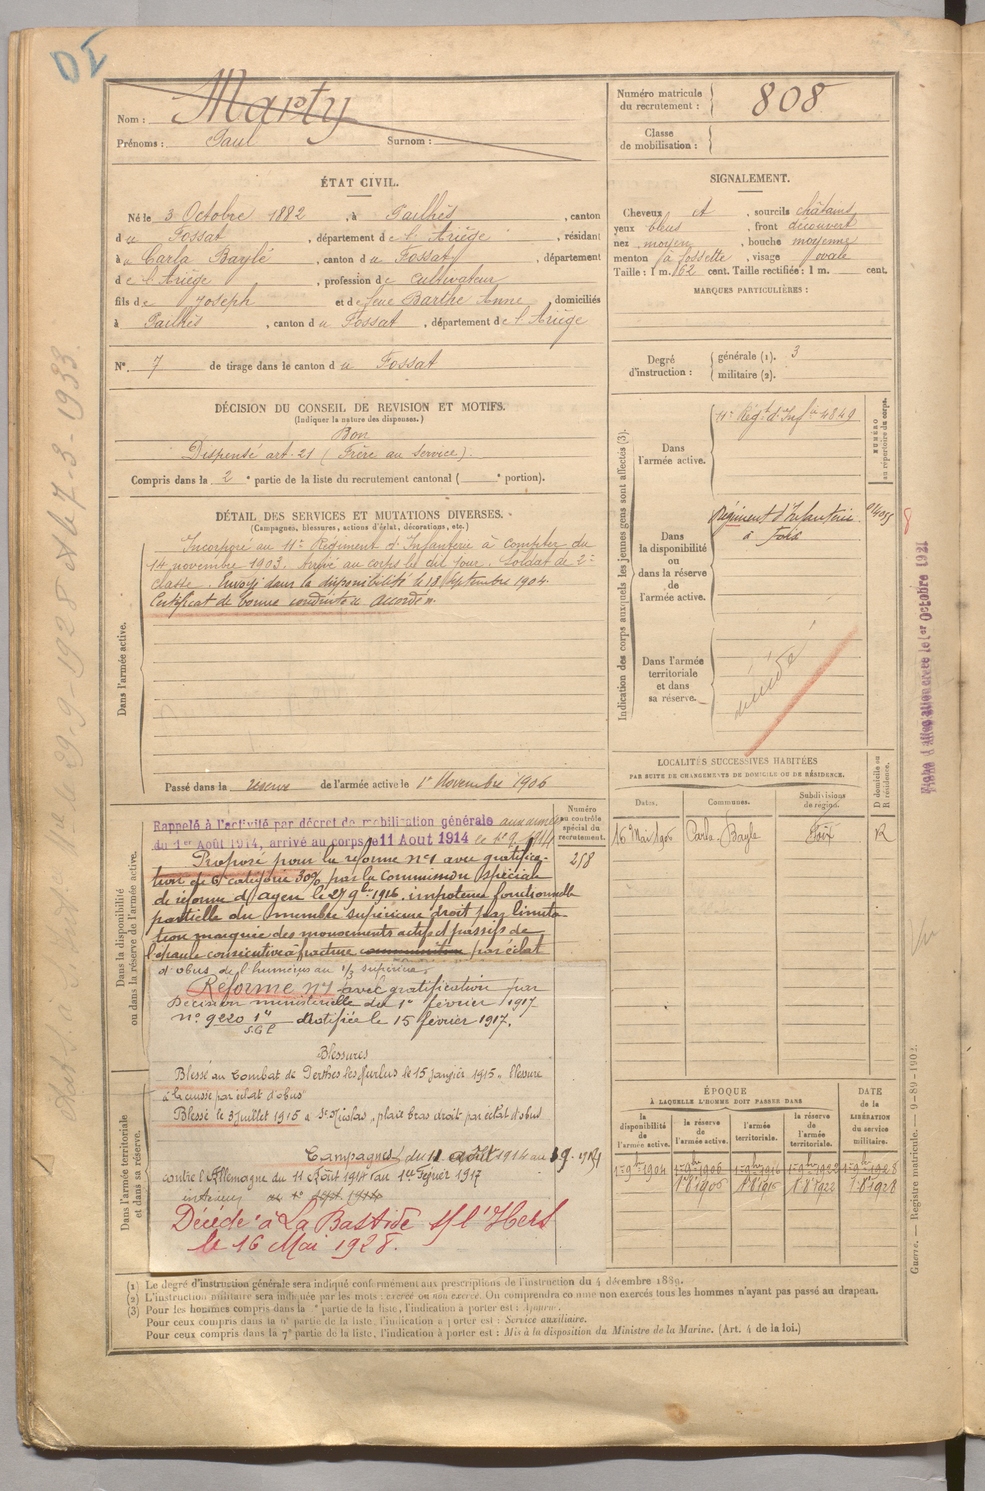 Nom : Marty
Prénoms : Paul Surnom :
Numéro matricule du recrutement : 808
Classe de mobilisation :
ÉTAT CIVIL.
Né le 3 Octobre 1882, à Pailhès, canton
du Fossat, département de l'Ariège, résidant
à Carla Baylé, canton du Fossat, département
de l'Ariège, profession de Cultivateur
fils de Joseph et de feue Barthe Anne, domiciliés
à Pailhès, canton du Fossat, département de l'Ariège
N° 7 de tirage dans le canton du Fossat
SIGNALEMENT.
Cheveux et, sourcils châtains
yeux bleus, front découvert
nez moyen, bouche moyenne
menton à fossette, visage ovale
Taille : 1 m. 62 cent. Taille rectifiée : 1 m. cent.
MARQUES PARTICULIÈRES :
Degré d'instruction : générale (1). 3
militaire (2).
DÉCISION DU CONSEIL DE REVISION ET MOTIFS.
(Indiquer la nature des dispenses.)
Bon
Dispensé art. 21 (Frère au service).
Compris dans la 2e partie de la liste du recrutement cantonal ( e portion).
DÉTAIL DES SERVICES ET MUTATIONS DIVERSES.
(Campagnes, blessures, actions d'éclat, décorations, etc.)
Dans l'armée active.
Incorporé au 11e Régiment d'Infanterie à compter du
14 novembre 1903. Arrivé au corps le dit jour. Soldat de 2e
classe. Envoyé dans la disponibilité le 18 Septembre 1904.
Certificat de bonne conduite accordé.
Passé dans la réserve de l'armée active le 1er Novembre 1906
Indication des corps auxquels les jeunes gens sont affectés (3).
NUMÉRO au répertoire du corps.
Dans l'armée active.
11e Régt d'Infie 4849
Dans la disponibilité ou dans la réserve de l'armée active.
Régiment d'Infanterie
à Foix
Dans l'armée territoriale et dans sa réserve.
décédé
LOCALITÉS SUCCESSIVES HABITÉES
PAR SUITE DE CHANGEMENTS DE DOMICILE OU DE RÉSIDENCE.
Dates. Communes. Subdivisions de région. D domicile ou R résidence.
16 Mai 1906 Carla-Bayle Foix R
Dans la disponibilité ou dans la réserve de l'armée active.
Numéro au contrôle spécial du recrutement.
258
Rappelé à l'activité par décret de mobilisation générale
du 1er Août 1914, arrivé au corps le 11 Aout 1914
Proposé pour la réforme n°1 avec gratifica-
tion de 6e catégorie 30% par la Commission spéciale
de réforme d'Agen le 27 9bre 1916, impotence fonctionnelle
partielle du membre supérieur droit par limita-
tion marquée des mouvements actifs et passifs de
l'épaule consécutive à fracture par éclat
d'obus de l'humérus au 1/3 supérieur.
Réforme n°1 avec gratification par
Décision ministérielle du 1er février 1917
n° 9220 1" notifiée le 15 février 1917.
Blessures
Blessé au Combat de Perthes les Hurlus le 15 janvier 1915, blessure
à la cuisse par éclat d'obus
Blessé le 3 juillet 1915 à St Nicolas, plaie bras droit par éclat d'obus
Dans l'armée territoriale et dans sa réserve.
Campagnes du 11 août 1914 au
contre l'Allemagne du 11 Août 1914 au 1er Février 1917
Décédé à La Bastide s/ l'Hers
le 16 Mai 1928.
ÉPOQUE
À LAQUELLE L'HOMME DOIT PASSER DANS
la disponibilité de l'armée active. la réserve de l'armée active. l'armée territoriale. la réserve de l'armée territoriale. DATE de la LIBÉRATION du service militaire.
1er 9bre 1904 1er 9bre 1906 1er 9bre 1916 1er 9bre 1922 1er 9bre 1928
1.8bre 1906 1.8bre 1916 1.8bre 1922 1.8bre 1928
(1) Le degré d'instruction générale sera indiqué conformément aux prescriptions de l'instruction du 4 décembre 1889.
(2) L'instruction militaire sera indiquée par les mots : exercé ou non exercé. On comprendra comme non exercés tous les hommes n'ayant pas passé au drapeau.
(3) Pour les hommes compris dans la 1re partie de la liste, l'indication à porter est : Ajourné.
Pour ceux compris dans la 6e partie de la liste, l'indication à porter est : Service auxiliaire.
Pour ceux compris dans la 7e partie de la liste, l'indication à porter est : Mis à la disposition du Ministre de la Marine. (Art. 4 de la loi.)
Guerre. — Registre matricule. — 9-89-1902.